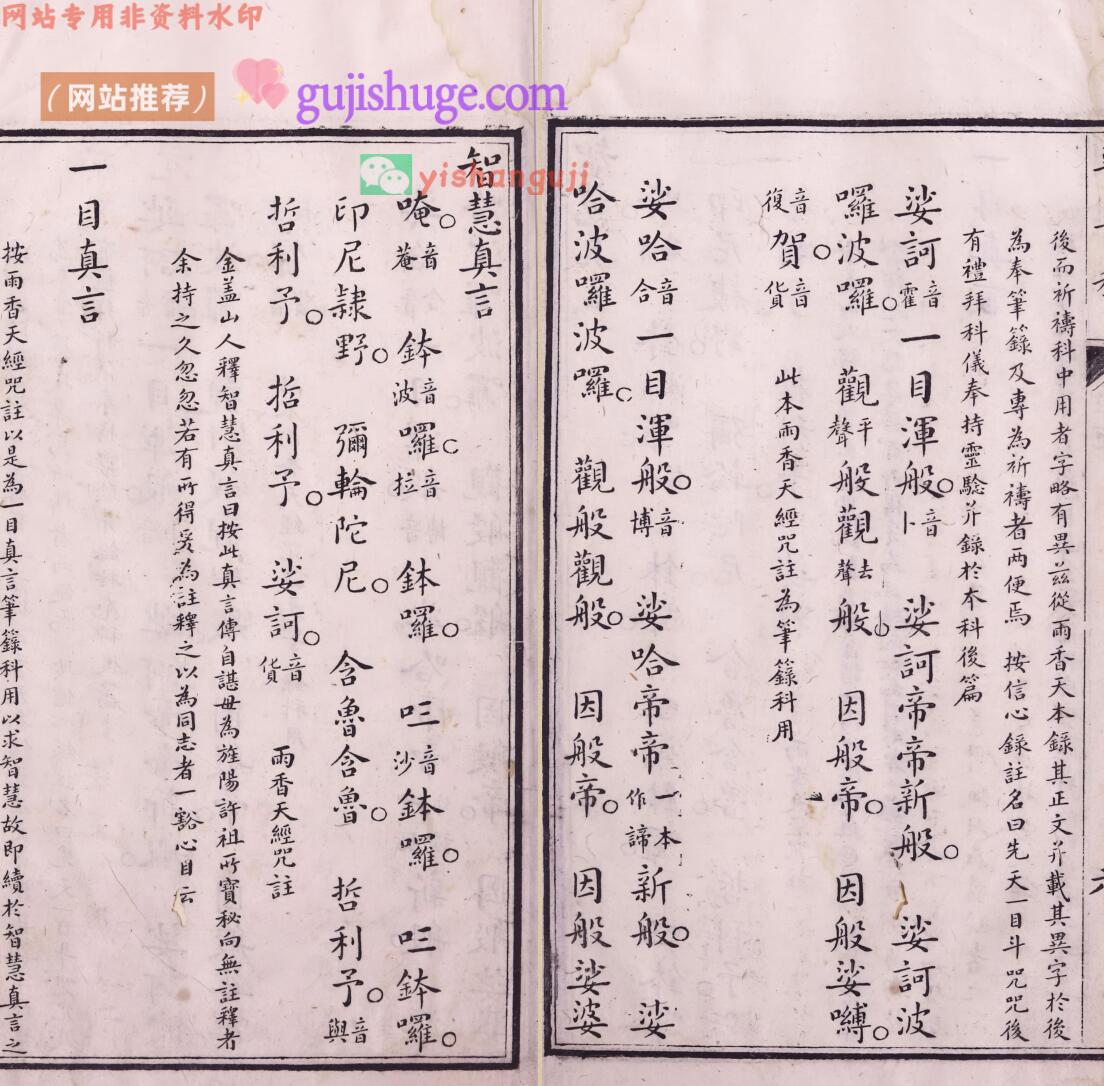 网站专用非资料水印
（网站推荐）
gujishuge.com
yishanguji
後而祈禱科中用者字略有異茲從雨香天本錄其正文并載其異字於後
為奉筆籙及專為祈禱者两便焉　按信心錄註名曰先天一目斗咒咒後
有禮拜科儀奉持靈驗并錄於本科後篇
娑訶音霍　一目渾般音卜　娑訶帝帝新般　娑訶波
囉波囉　觀平聲般觀去聲般　因般帝　因般娑嚩
音復賀音貨　此本雨香天經咒註為筆籙科用
娑哈音合　一目渾般音博　娑哈帝帝一本作諦新般　娑
哈波囉波囉　觀般觀般　因般帝　因般娑婆
智慧真言
唵音菴　鉢音波囉音拉　鉢囉　吣音沙鉢囉　吣鉢囉
印尼隷野　彌輪陀尼　含魯含魯　哲利予音與
哲利予　哲利予　娑訶音貨　雨香天經咒註
金盖山人釋智慧真言曰按此真言傳自諶母為旌陽許祖所寶秘向無註釋者
余持之久忽忽若有所得爰為註釋之以為同志者一豁心目云
一目真言
按雨香天經咒註以是為一目真言筆籙科用以求智慧故即續於智慧真言之